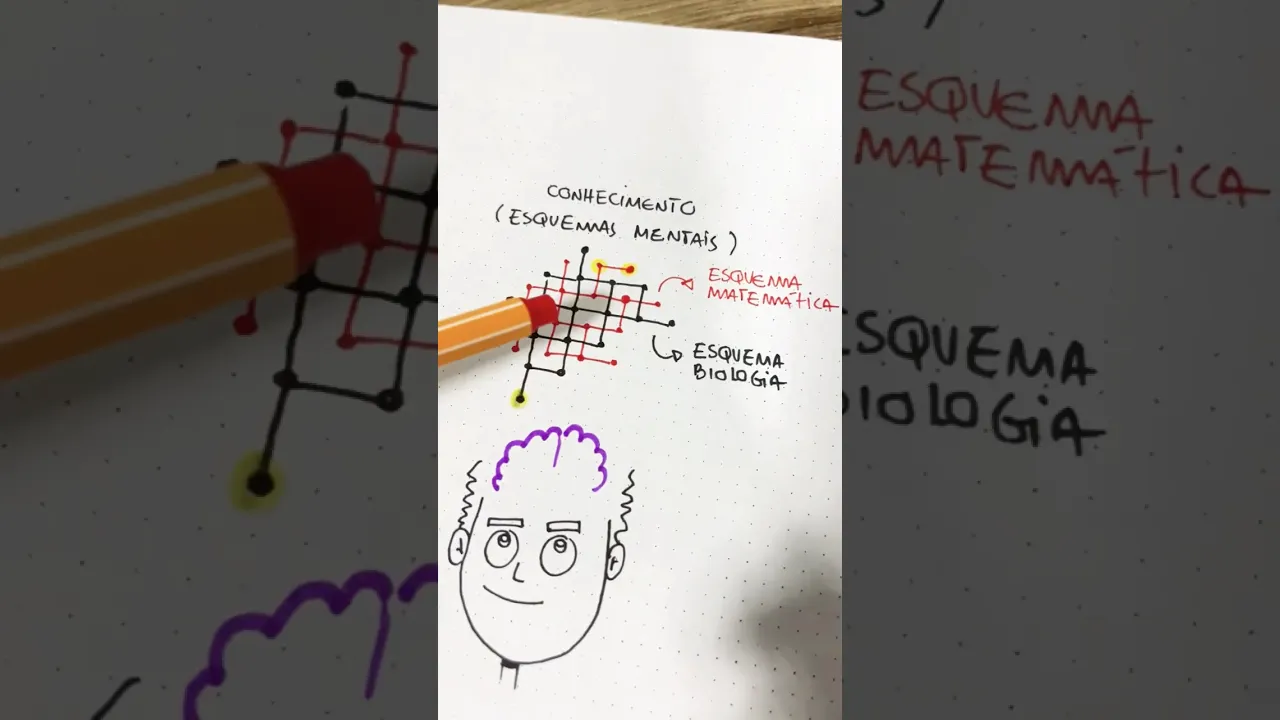 CONHECIMENTO
(ESQUEMAS MENTAIS)
ESQUEMA
MATEMÁTICA
ESQUEMA
BIOLOGIA